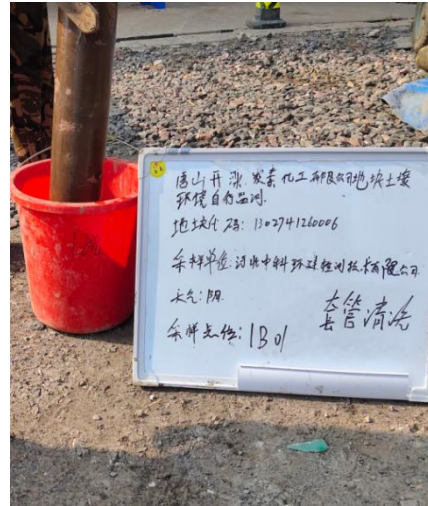 唐山开滦炭素化工有限公司地块土壤
环境自行监测.
地块代码: 1302741260006
采样单位: 河北中科环球检测技术有限公司
天气: 阴.
采样点位: 1B01
套管清洗